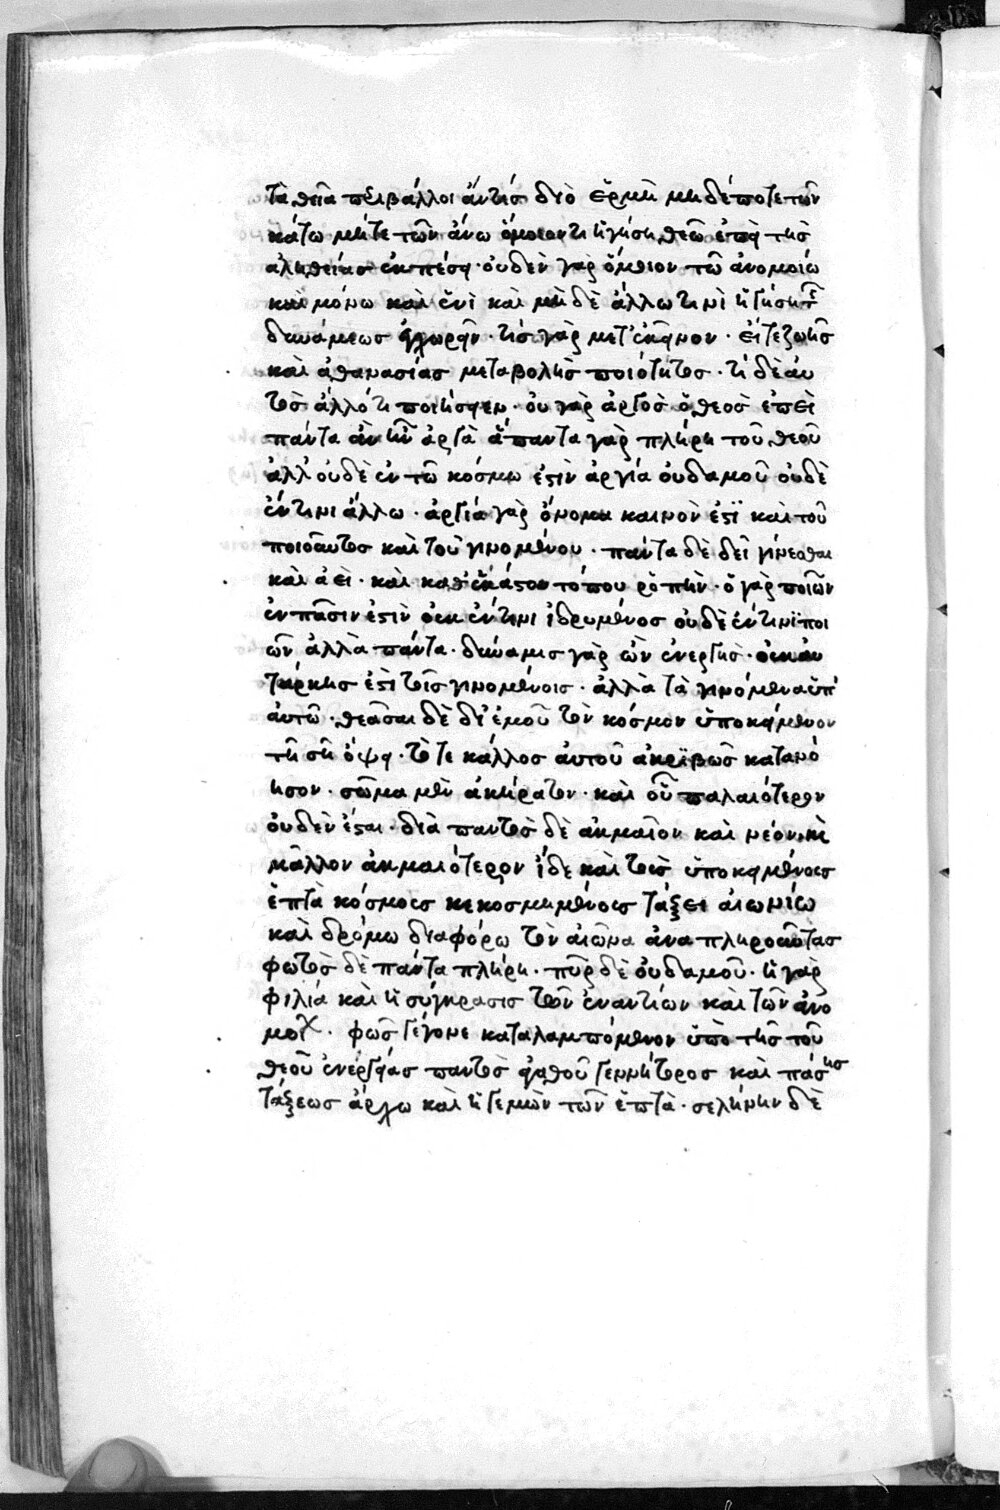 τὰ θεῖα περιβάλλοι ἄν τις διὸ ὦ ἑρμῆ μηδέποτε τῶν
κάτω μήτε τῶν ἄνω ὅμοιόν τι ἡγήσῃ θεῶ ἐπεὶ τῆς
ἀληθείας ἐκπέσῃ · οὐδὲν γὰρ ὅμοιον τῶ ἀνομοίω
καὶ μόνω καὶ ἑνὶ καὶ μὴ δὲ ἄλλω τινὶ ἡγήσῃ τῆς
δυνάμεως ἐκχωρεῖν · τίς γὰρ μετ' ἐκεῖνον · εἴτε ζωῆς
καὶ ἀθανασίας μεταβολῆς ποιότητος · τί δὲ αὐ
τὸς ἄλλό τι ποιήσειεν · οὐ γὰρ ἀργὸς ὁ θεὸς ἐπεὶ
πάντα ἂν ἦν ἀργὰ ἅπαντα γὰρ πλήρη τοῦ θεοῦ
ἀλλ' οὐδὲ ἐν τῶ κόσμω ἐστὶν ἀργία οὐδαμοῦ οὐδὲ
ἔν τινι ἄλλω · ἀργία γὰρ ὄνομα καινὸν ἐστὶ καὶ τοῦ
ποιοῦντος καὶ τοῦ γινομένου · πάντα δὲ δεῖ γίνεσθαι
καὶ ἀεὶ · καὶ καθ' ἕκάστου τόπου ῥοπὴν · ὁ γὰρ ποιῶν
ἐν πᾶσιν ἐστὶν οὐκ ἔν τινι ἱδρυμένος οὐδὲ ἔν τινι ποι
ῶν ἀλλὰ πάντα · δύναμις γὰρ ὢν ἐνεργὴς · οὐκ αὐ
τάρκης ἐστὶ τοῖς γινομένοις · ἀλλὰ τὰ γινόμενα ὑπ'
αὐτῶ · θεᾶσαι δὲ δι' ἐμοῦ τὸν κόσμον ὑποκείμενον
τῆ σῆ ὄψει · τό τε κάλλος αὐτοῦ ἀκριβῶς κατανό
ησον · σῶμα μὲν ἀκήρατον · καὶ οὗ παλαιότερον
οὐδὲν ἔσται · διὰ παντὸς δὲ ἀκμαῖον καὶ νέον καὶ
μᾶλλον ἀκμαιότερον ἴδε καὶ τοὺς ὑποκειμένους
ἑπτὰ κόσμους κεκοσμημένους τάξει αἰωνίω
καὶ δρόμω διαφόρω τὸν αἰῶνα ἀναπληροῦντας
φωτὸς δὲ πάντα πλήρη · πῦρ δὲ οὐδαμοῦ · ἡ γὰρ
φιλία καὶ ἡ σύγκρασις τῶν ἐναντίων καὶ τῶν ἀνο
μοίων · φῶς γέγονε καταλαμπόμενον ὑπὸ τῆς τοῦ
θεοῦ ἐνεργείας παντὸς ἀγαθοῦ γεννήτορος καὶ πάσης
τάξεως ἄρχω καὶ ἡγεμὼν τῶν ἑπτὰ · σελήνην δὲ